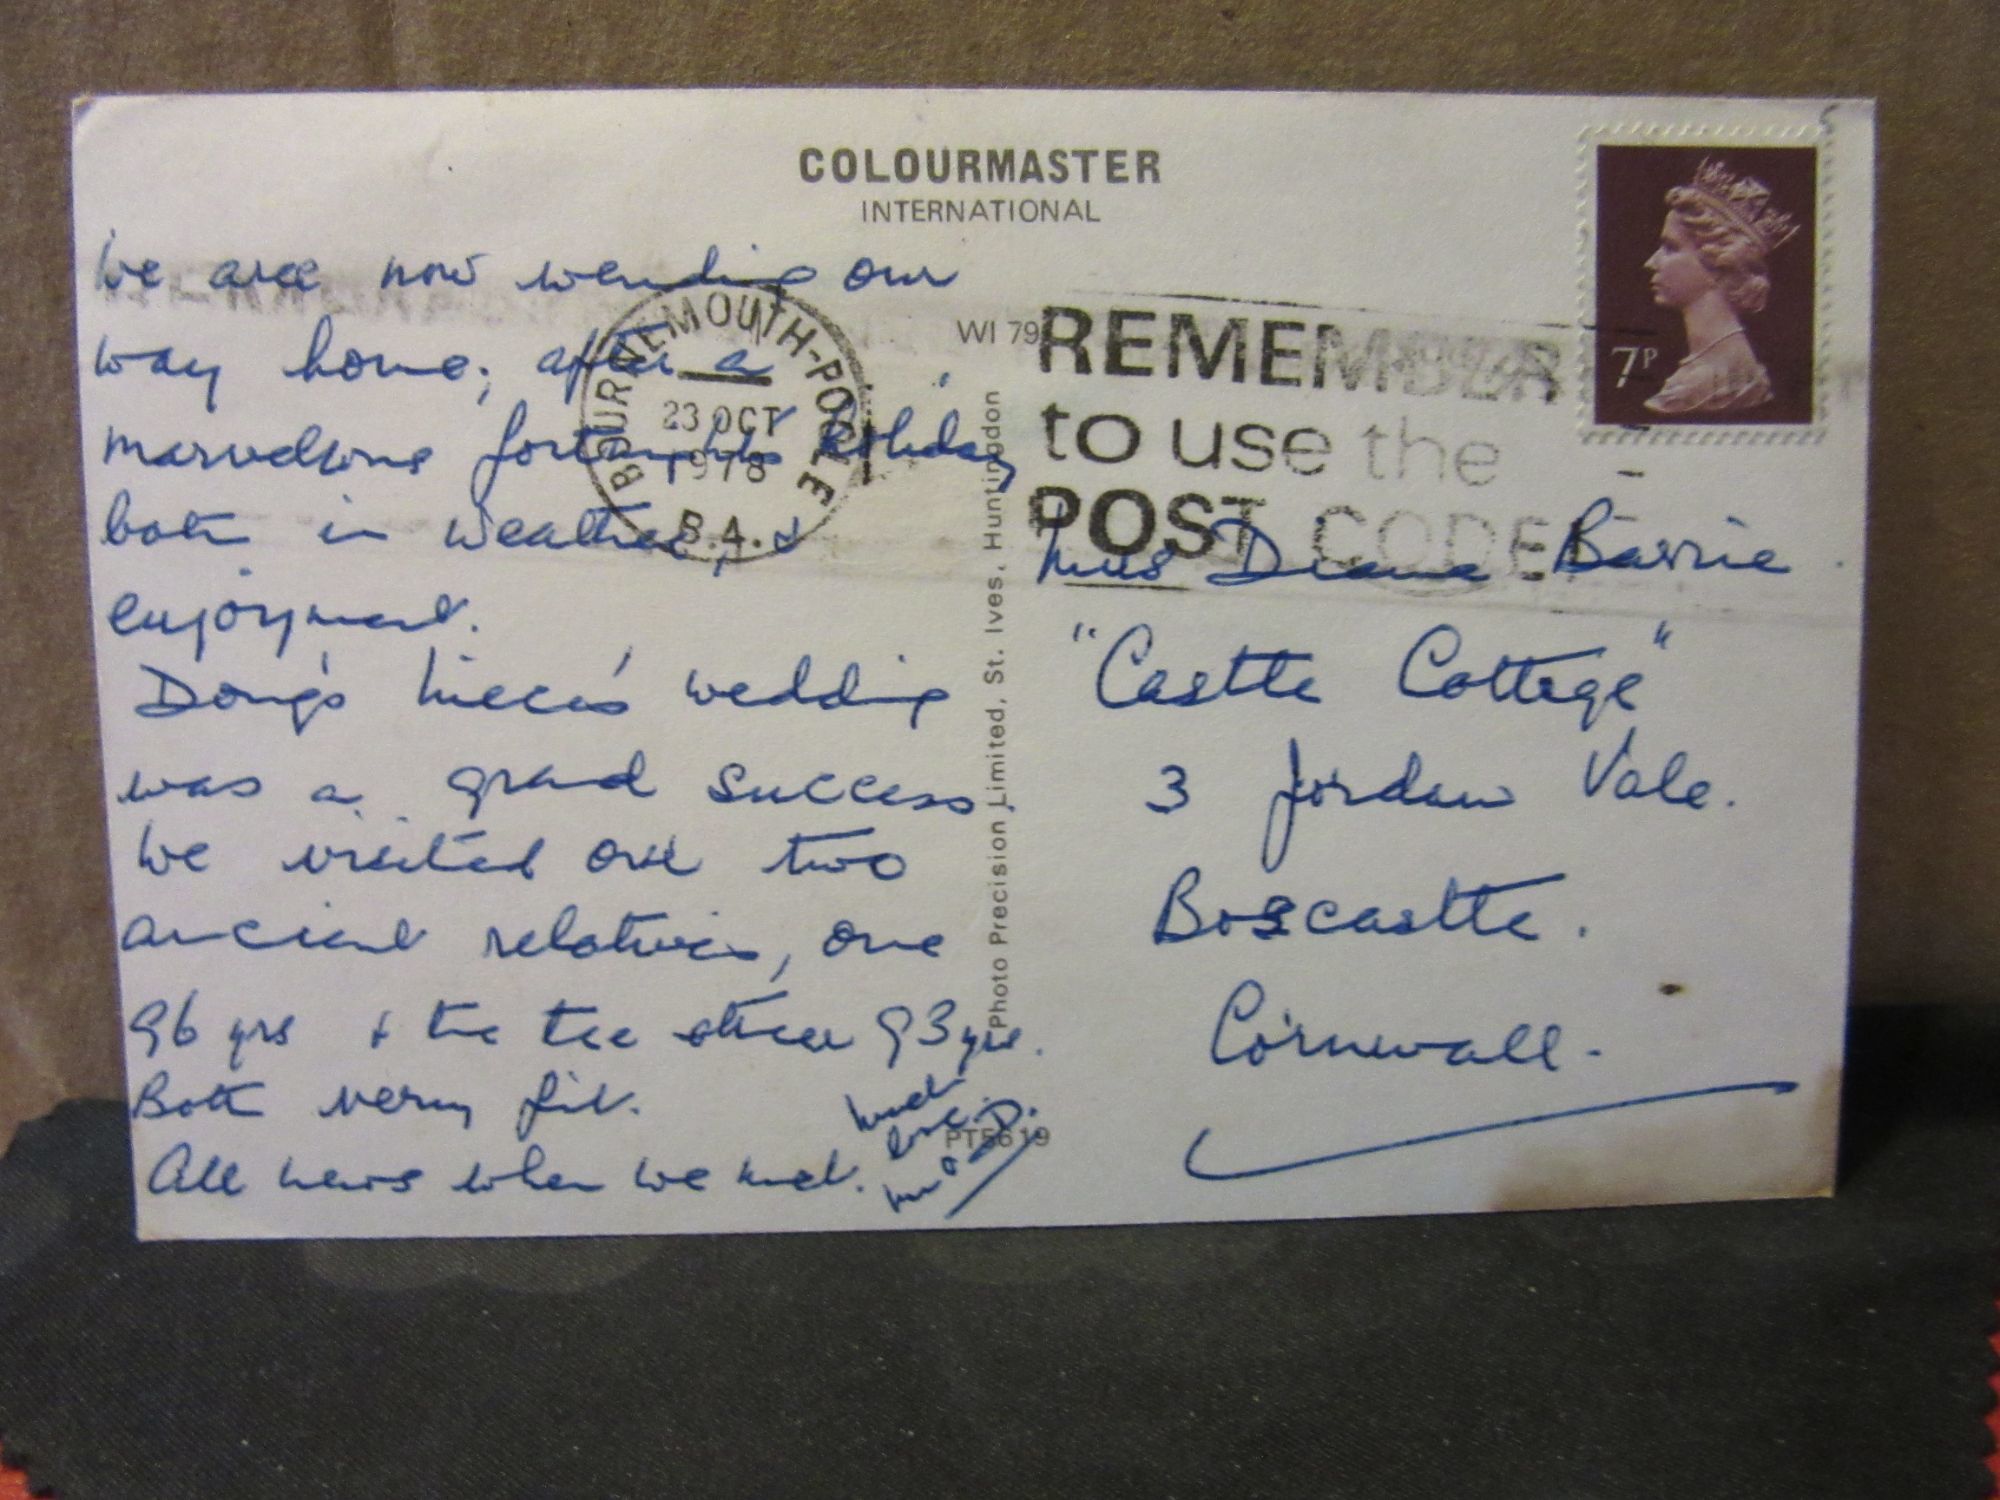 COLOURMASTER
INTERNATIONAL
We are now wending our
way home, after a
marvellous fortnights holiday
both in weather, &
enjoyment.
Doug's niece's wedding
was a grand success
We visited our two
ancient relatives, one
96 yrs & the other 93 yrs.
Both very fit.
All news when we meet.
Much
love.
BOURNEMOUTH-POOLE
23 OCT
1978
B.A.
WI 79
REMEMBER
to use the
POST CODE
7P
Photo Precision Limited, St. Ives, Huntingdon
PT5619
Miss Diana Barrie
"Castle Cottage"
3 Jordan Vale.
Boscastle.
Cornwall.